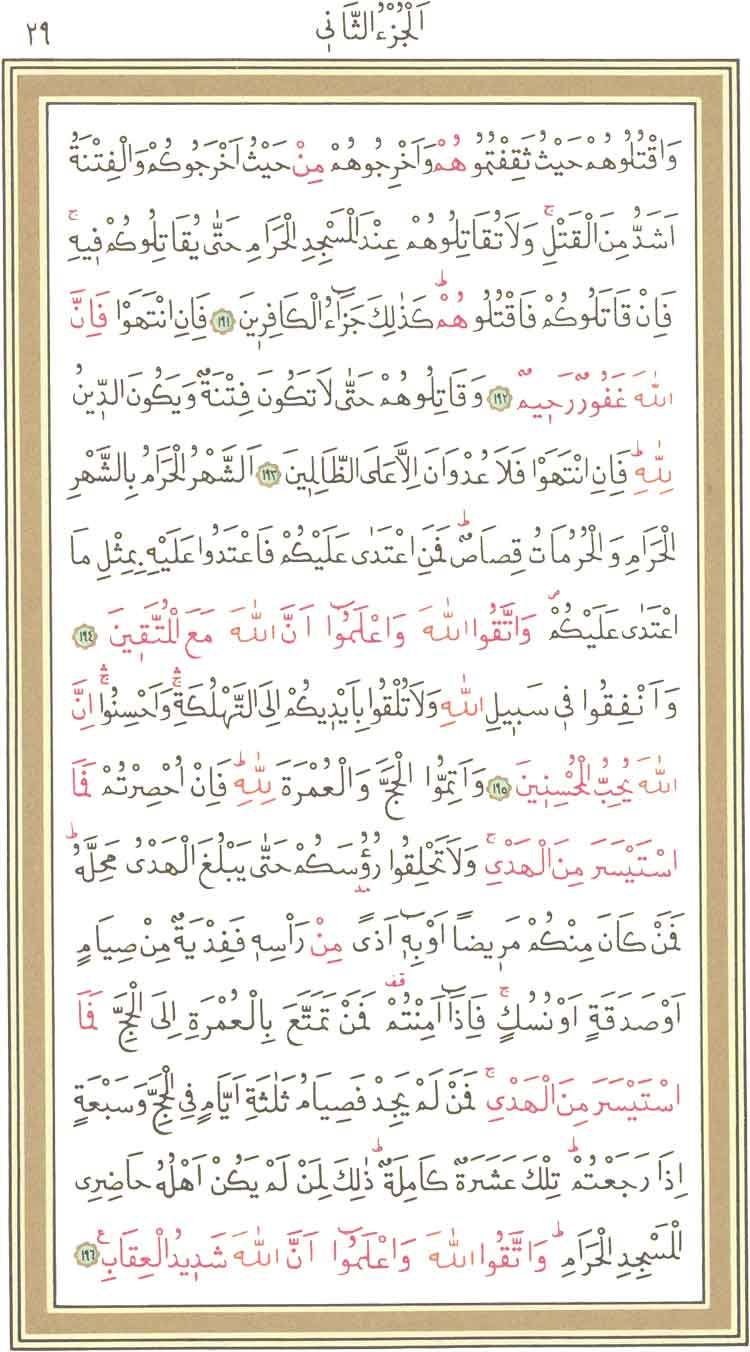 اَلْجُزْءُ الثَّانٖي
٢٩
وَاقْتُلُوهُمْ حَيْثُ ثَقِفْتُمُوهُمْ وَاَخْرِجُوهُمْ مِنْ حَيْثُ اَخْرَجُوكُمْ وَالْفِتْنَةُ
اَشَدُّ مِنَ الْقَتْلِۚ وَلَا تُقَاتِلُوهُمْ عِنْدَ الْمَسْجِدِ الْحَرَامِ حَتّٰى يُقَاتِلُوكُمْ فٖيهِۚ
فَاِنْ قَاتَلُوكُمْ فَاقْتُلُوهُمْؕ كَذٰلِكَ جَزَٓاءُ الْكَافِرٖينَ ﴿١٩١﴾ فَاِنِ انْتَهَوْا فَاِنَّ
اللّٰهَ غَفُورٌ رَحٖيمٌ ﴿١٩٢﴾ وَقَاتِلُوهُمْ حَتّٰى لَا تَكُونَ فِتْنَةٌ وَيَكُونَ الدّٖينُ
لِلّٰهِؕ فَاِنِ انْتَهَوْا فَلَا عُدْوَانَ اِلَّا عَلَى الظَّالِمٖينَ ﴿١٩٣﴾ اَلشَّهْرُ الْحَرَامُ بِالشَّهْرِ
الْحَرَامِ وَالْحُرُمَاتُ قِصَاصٌؕ فَمَنِ اعْتَدٰى عَلَيْكُمْ فَاعْتَدُوا عَلَيْهِ بِمِثْلِ مَا
اعْتَدٰى عَلَيْكُمْࣕ وَاتَّقُوا اللّٰهَ وَاعْلَمُٓوا اَنَّ اللّٰهَ مَعَ الْمُتَّقٖينَ ﴿١٩٤﴾
وَاَنْفِقُوا فٖي سَبٖيلِ اللّٰهِ وَلَا تُلْقُوا بِاَيْدٖيكُمْ اِلَى التَّهْلُكَةِۚۛ وَاَحْسِنُواۚۛ اِنَّ
اللّٰهَ يُحِبُّ الْمُحْسِنٖينَ ﴿١٩٥﴾ وَاَتِمُّوا الْحَجَّ وَالْعُمْرَةَ لِلّٰهِؕ فَاِنْ اُحْصِرْتُمْ فَمَا
اسْتَيْسَرَ مِنَ الْهَدْيِۚ وَلَا تَحْلِقُوا رُؤُ۫سَكُمْ حَتّٰى يَبْلُغَ الْهَدْىُ مَحِلَّهُؕ
فَمَنْ كَانَ مِنْكُمْ مَرٖيضاً اَوْ بِهٖٓ اَذًى مِنْ رَاْسِهٖ فَفِدْيَةٌ مِنْ صِيَامٍ
اَوْ صَدَقَةٍ اَوْ نُسُكٍۚ فَاِذَٓا اَمِنْتُمْࣞ فَمَنْ تَمَتَّعَ بِالْعُمْرَةِ اِلَى الْحَجِّ فَمَا
اسْتَيْسَرَ مِنَ الْهَدْيِۚ فَمَنْ لَمْ يَجِدْ فَصِيَامُ ثَلٰثَةِ اَيَّامٍ فِي الْحَجِّ وَسَبْعَةٍ
اِذَا رَجَعْتُمْؕ تِلْكَ عَشَرَةٌ كَامِلَةٌؕ ذٰلِكَ لِمَنْ لَمْ يَكُنْ اَهْلُهُ حَاضِرِى
الْمَسْجِدِ الْحَرَامِؕ وَاتَّقُوا اللّٰهَ وَاعْلَمُٓوا اَنَّ اللّٰهَ شَدٖيدُ الْعِقَابِ ع ﴿١٩٦﴾